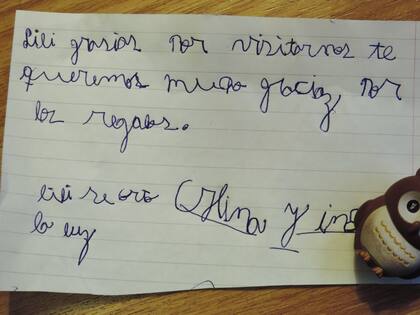 Lili grasias por visitarnos te
queremos mucho gracias por
los regalos.
Lili se
la luz
y